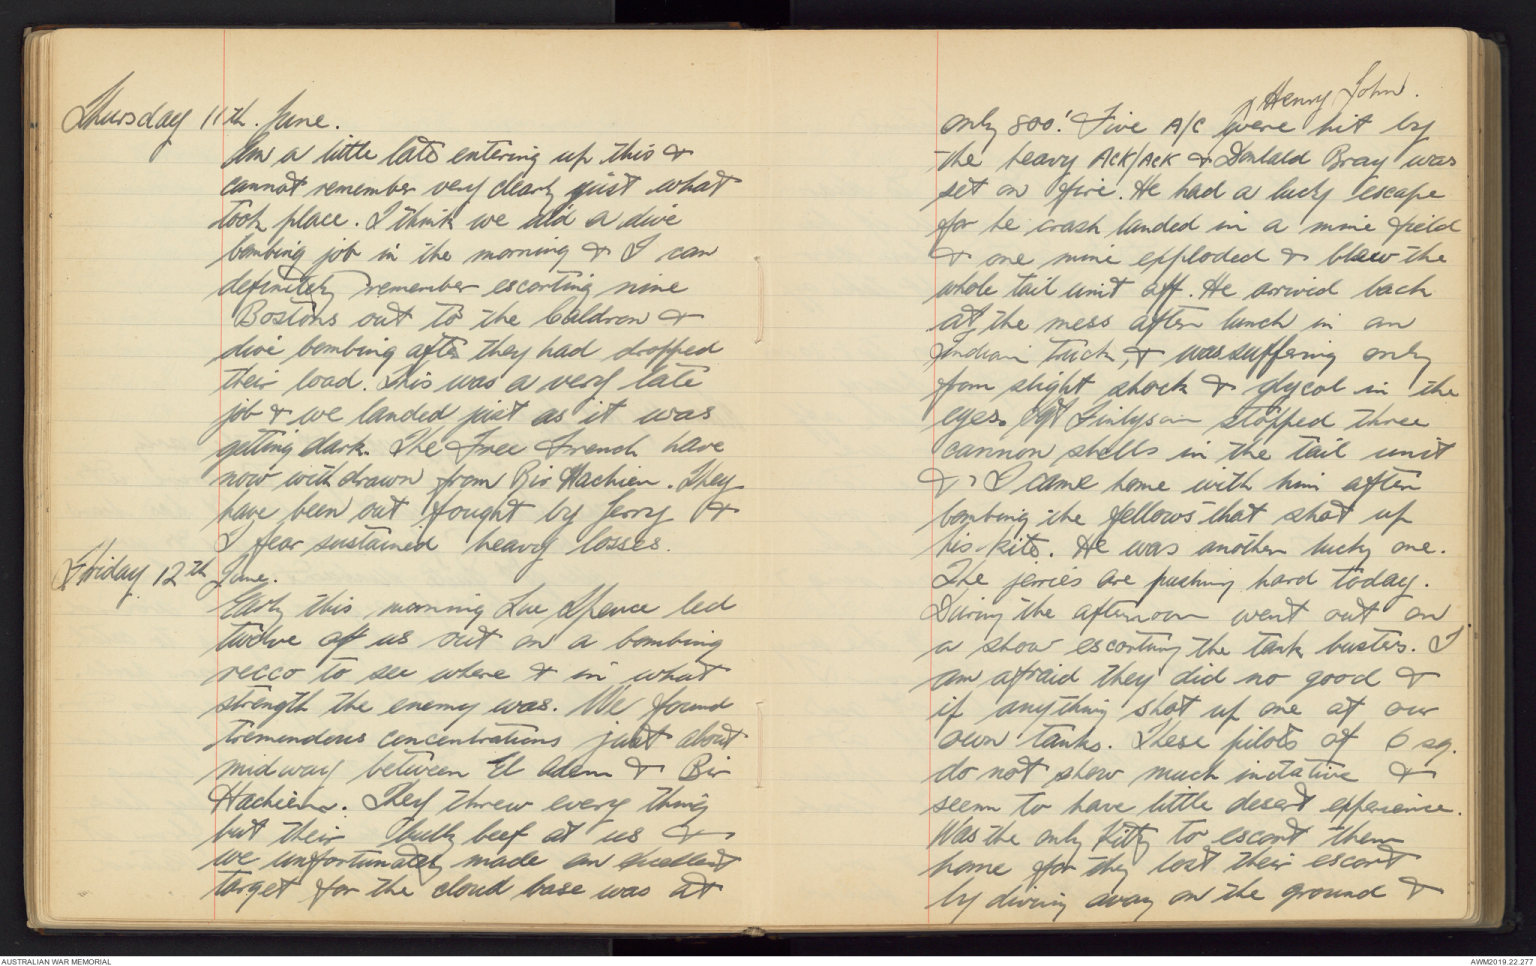 Thursday 11th. June.
Am a little late entering up this &
cannot remember very clearly just what
took place. I think we did a dive
bombing job in the morning & I can
definitely remember escorting nine
Bostons out to the Caldron &
dive bombing after they had dropped
their load. This was a very late
job & we landed just as it was
getting dark. The Free French have
now withdrawn from Bir Hachien. They
have been out fought by Jerry &
I fear sustained heavy losses.
Friday 12th June.
Early this morning Lue Spence led
twelve of us out on a bombing
recco to see where & in what
strength the enemy was. We found
tremendous concentrations just about
midway between El Adem & Bir
Hachiem. They threw every thing
but their bully beef at us &
we unfortunately made an excellent
target for the cloud base was at
Henry John.
only 800'. Five A/C were hit by
the heavy ACK/ACK & Donlald Bray was
set on fire. He had a lucky escape
for he crash landed in a mine field
& one mine exploded & blew the
whole tail unit off. He arrived back
at the mess after lunch in an
Indian truck, & was suffering only
from slight shock & glycol in the
eyes. Sgt Finlyson stopped three
cannon shells in the tail unit
& I came home with him after
bombing the fellows that shot up
his kite. He was another lucky one.
The jerries are pushing hard today.
During the afternoon went out on
a show escorting the tank busters. I
am afraid they did no good &
if anything shot up one at our
own tanks. These pilots of 6 sq.
do not show much initative &
seem to have little desert experience.
Was the only Kitty to escort them
home for they lost their escort
by diving away on the ground &
AUSTRALIAN WAR MEMORIAL
AWM2019.22.277